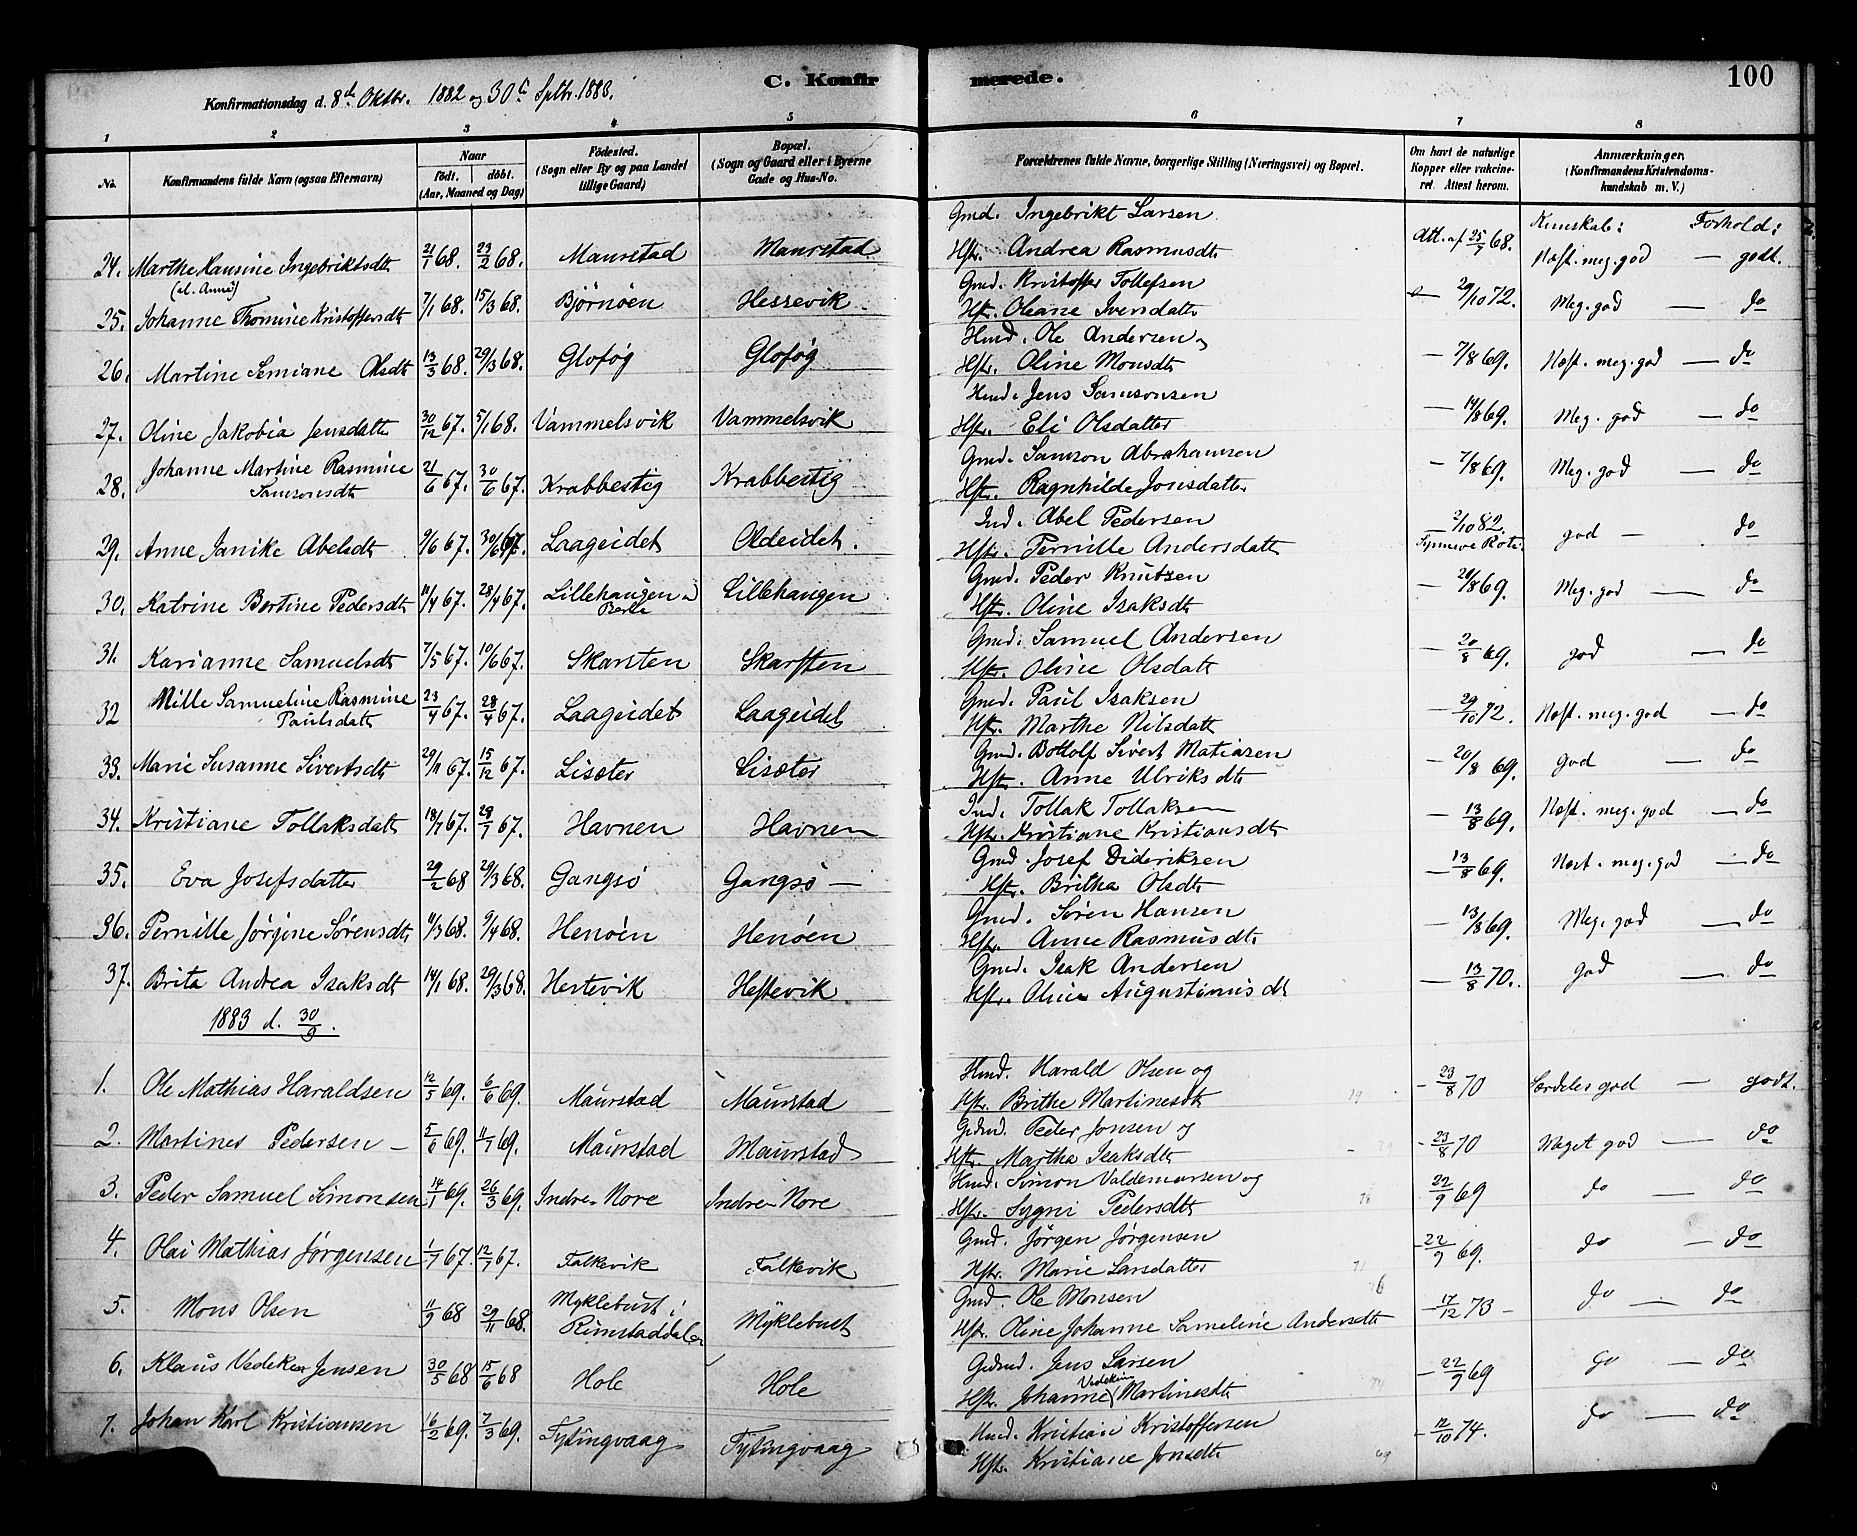 C. Konfirmerede. 100
Konfirmationsdag d. 8de Oktbr. 1882 og 30te Sptbr. 1883.
1 2 3 4 5 6 7 8
No. Konfirmandens fulde Navn (ogsaa Efternavn) Naar født. døbt. (Aar, Maaned og Dag) Fødested. (Sogn eller By og paa Landet tillige Gaard) Bopæl. (Sogn og Gaard eller i Byerne Gade og Hus-No. Forældrenes fulde Navne, borgerlige Stilling (Næringsvei) og Bopæl. Om havt de naturlige Kopper eller vakcineret. Attest herom. Anmærkninger. (Konfirmandens Kristendomskundskab m. V.)
Kunskab: Forhold:
24. Marthe Hansine Ingebriktsdt 21/1 68. 23/2 68. Maurstad Maurstad Gmd. Ingebrikt Larsen Att. af 25/9 68. Næst. meg. god — godt.
Hstr. Andrea Rasmusdt
25. Johanne Thomine Kristoffersdt 7/1 68. 15/3 68. Bjørnøen Hessevik Gmd. Kristoffer Tollefsen 29/10 72. Meg. god — do
Hst. Oleane Iversdatt
26. Martine Semiane Olsdt 13/3 68. 29/3 68. Gloføg Gloføg Hmd. Ole Andersen — 7/8 69. Næst. meg. god — do
Hstr. Oline Monsdt
27. Oline Jakobia Jensdatt 30/12 67. 5/1 68. Vammelsvik Vammelsvik Hmd. Jens Samsonsen — 14/8 69. Meg. god — do
Hstr. Eli Olsdatter
28. Johanne Martine Rasmine Samsonsdt 21/6 67. 30/6 67. Krabbestig Krabbestig Gmd. Samson Abrahamsen — 7/8 69. Meg. god — do
Hstr. Ragnhilde Jonsdatter
29. Anne Janike Abelsdt 9/6 67. 30/6 67. Laageidet Oldeidet. Ind. Abel Pedersen 2/10 82. god — do
Hstr. Pernille Andersdatt
30. Katrine Bertine Pedersdt 11/4 67. 28/4 67. Lillehaugen Lillehaugen Gmd. Peder Knutsen — 20/8 69. Meg. god — do
Hstr. Oline Isaksdt
31. Karianne Samuelsdt 7/5 67. 10/6 67. Skarsten Skarsten Gmd. Samuel Andersen — 20/8 69. god — do
Hstr. Oline Olsdatt
32 Nille Samueline Rasmine Paulsdatt 23/4 67. 28/4 67. Laageidet Laageidet Gmd. Paul Isaksen — 29/10 72. Næst. meg. god — do
Hstr. Marthe Nilsdatt
33. Marie Susanne Sivertsdt 29/11 67. 15/12 67. Lisæter Lisæter Gmd. Bottolf Sivert Matiasen — 20/8 69. god — do
Hstr. Anne Ulriksdt
34. Kristiane Tollaksdatt 18/7 67. 28/7 67. Havnen Havnen Ind. Tollak Tollaksen — 13/8 69. Næst. meg. god — do
Hstr. Kristiane Kristiansdt
35. Eva Josefsdatter 29/2 68 29/3 68. Gangsø Gangsø — Gmd. Josef Dideriksen — 13/8 69. Næst. meg. god — do
Hstr. Britha Olsdt
36. Pernille Jørgine Sørensdt 11/3 68. 9/4 68. Henøen Henøen Gmd. Søren Hansen — 13/8 69. Meg. god — do
Hstr. Anne Rasmusdt.
37. Brita Andrea Isaksdt 14/1 68. 29/3 68. Hestevik Hestevik Gmd. Isak Andersen — 13/8 70. god — do
Hstr. Oline Augustinusdt
1883 d. 30/9.
1. Ole Mathias Haraldsen 12/5 69. 6/6 69. Maurstad Maurstad Hmd. Harald Olsen og — 23/8 70 Særdeles god — godt.
Hstr. Brithe Martinesdt
2. Martines Pedersen — 5/6 69. 11/7 69. Maurstad Maurstad Gdmd. Peder Jonsen og — 23/8 70 Meget god — do
Hstr. Martha Isaksdt
3. Peder Samuel Simonsen 14/1 69. 26/3 69. Indre-Nore Indre-Nore Hmd. Simon Valdemarsen og 22/9 69 do — do
Hstr. Sygni Pedersdt
4. Olai Mathias Jørgensen 1/7 67. 12/7 67. Falkevik Falkevik Gmd. Jørgen Jørgensen — 22/9 69. do — do
Hstr. Marie Larsdatter
5. Mons Olsen 11/9 68 29/11 68. Myklebust i Rimstaddalen Myklebust Gmd. Ole Monsen — 17/12 73 — do — do
Hstr. Oline Johanne Sameline Andersdt
6. Klaus Vedeken Jensen 30/5 68 15/6 68 Hole Hole Gdmd. Jens Larsen — 22/9 69 do — do
Hstr. Johanne Vedekine Martinesdt
7. Johan Karl Kristiansen 16/2 69. 7/3 69. Tytingvaag Tytingvaag Hmd. Kristian Kristoffersen — 12/10 74. do — do
Hstr. Kristiane Jonsdt